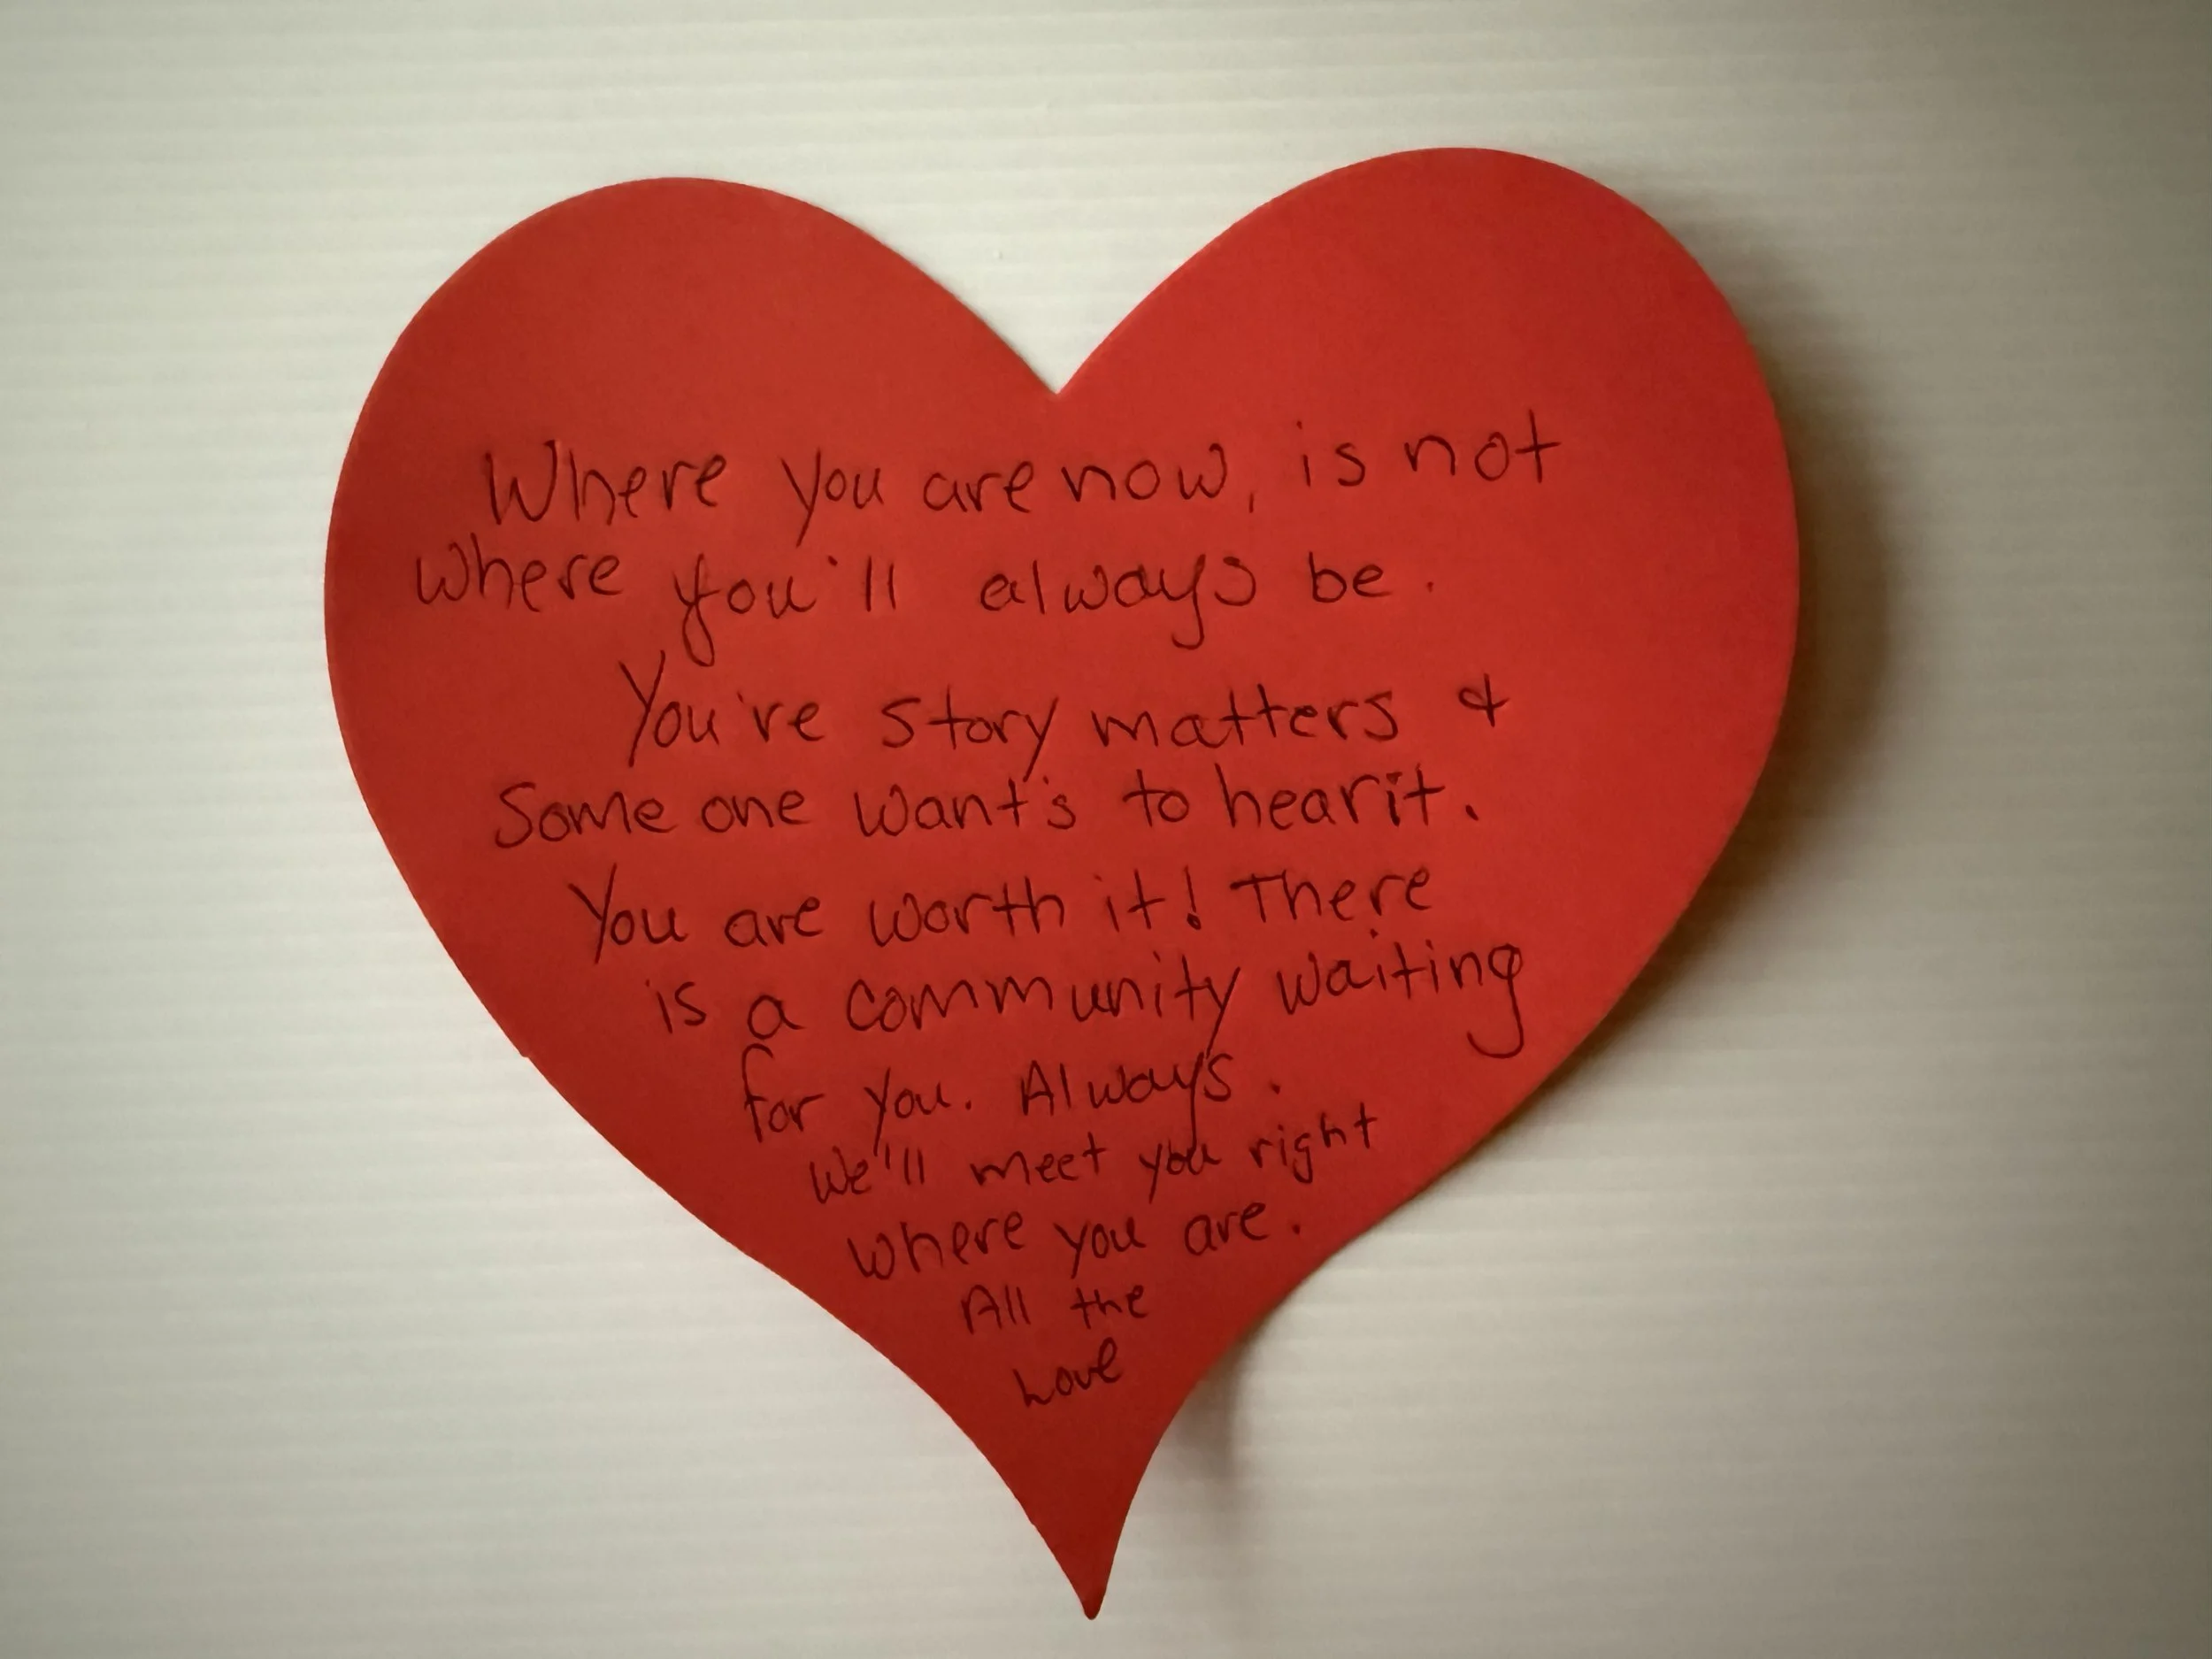 Where you are now, is not
where you'll always be.
You're story matters &
Some one want's to hear it.
You are worth it! There
is a community waiting
for you. Always.
We'll meet you right
where you are.
All the
Love